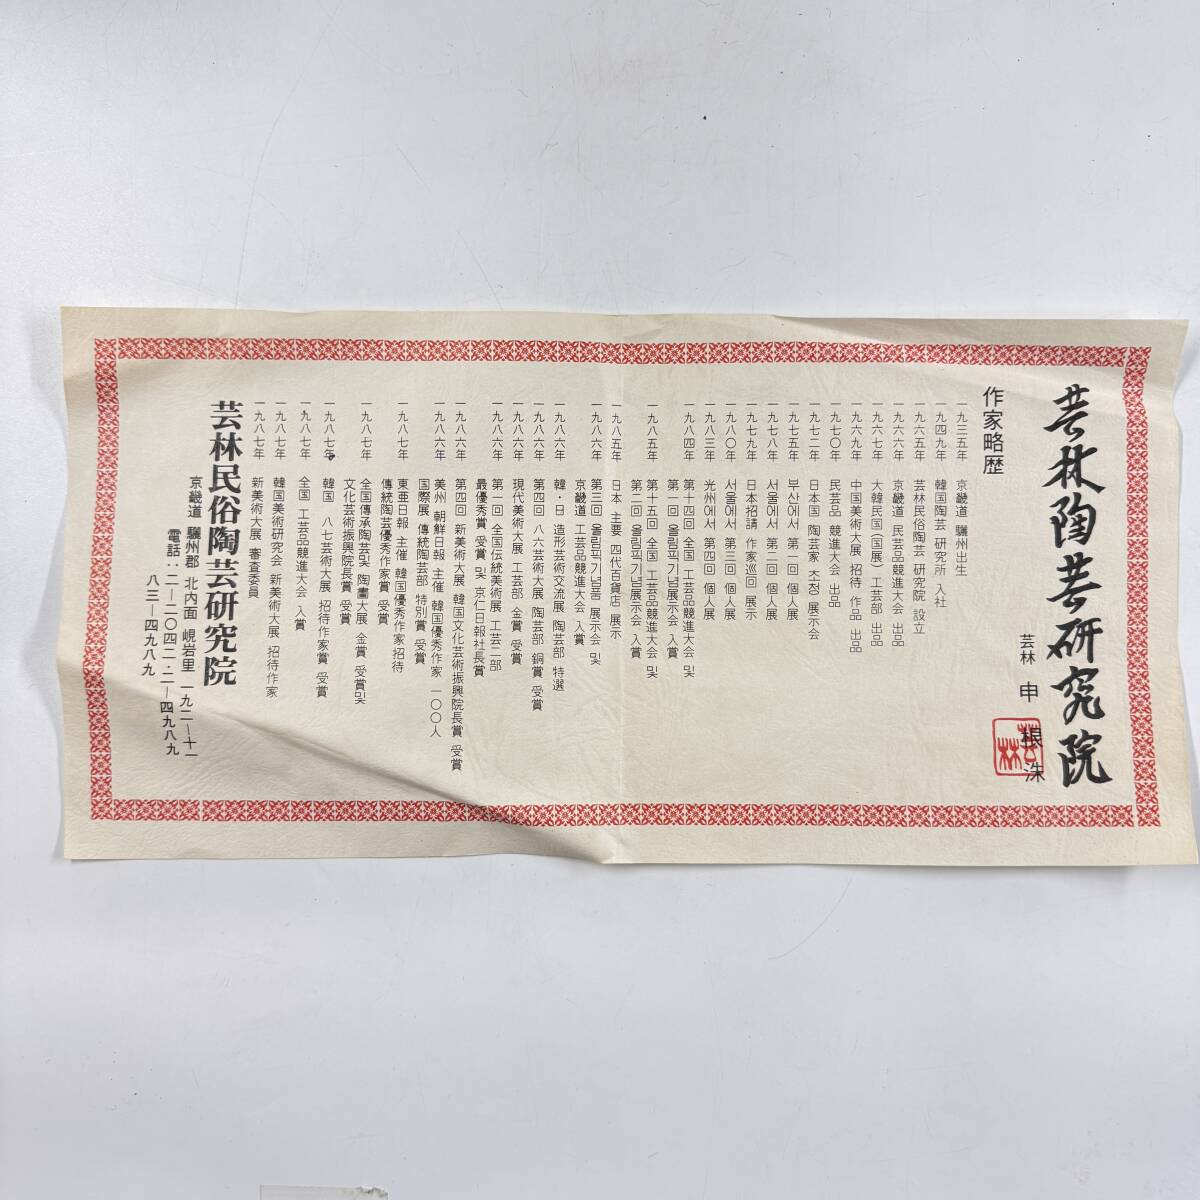 芸林陶芸研究院
芸林 申 根 洙
芸林
作家略歴
一九三五年 京畿道 驪州出生
一九四九年 韓国陶芸 研究所 入社
一九六五年 芸林民俗陶芸 研究院 設立
一九六六年 京畿道 民芸品競進大会 出品
一九六七年 大韓民国(国展) 工芸部 出品
一九六九年 中国美術大展 招待 作品 出品
一九七〇年 民芸品 競進大会 出品
一九七二年 日本国 陶芸家 초청 展示会
一九七五年 부산에서 第一回 個人展
一九七八年 서울에서 第二回 個人展
一九七九年 日本招請 作家巡回 展示
一九八〇年 서울에서 第三回 個人展
一九八三年 光州에서 第四回 個人展
一九八四年 第十四回 全国 工芸品競進大会 및
第一回 올림픽기념품展示会 入賞
一九八五年 第十五回 全国 工芸品競進大会 및
第二回 올림픽기념품展示会 入賞
一九八五年 日本 主要 四代百貨店 展示
一九八六年 第三回 올림픽기념품 展示会 및
京畿道 工芸品競進大会 入賞
一九八六年 韓・日 造形芸術交流展 陶芸部 特選
一九八六年 第四回 八六芸術大展 陶芸部 銅賞 受賞
一九八六年 現代美術大展 工芸部 金賞 受賞
一九八六年 第一回 全国伝統美術展 工芸二部
最優秀賞 受賞 및 京仁日報社長賞
一九八六年 第四回 新美術大展 韓国文化芸術振興院長賞 受賞
一九八六年 美州 朝鮮日報 主催 韓国優秀作家 一〇〇人
国際展 傳統陶芸部 特別賞 受賞
一九八七年 東亜日報 主催 韓国優秀作家招待
傳統陶芸優秀作家賞 受賞
一九八七年 全国傳承陶芸및 陶畵大展 金賞 受賞및
文化芸術振興院長賞 受賞
一九八七年 韓国 八七芸術大展 招待作家賞 受賞
一九八七年 全国 工芸品競進大会 入賞
一九八七年 韓国美術研究会 新美術大展 招待作家
一九八七年 新美術大展 審査委員
芸林民俗陶芸研究院
京畿道 驪州郡 北内面 峴岩里 一九二―十一
電話：二―二〇四二・二―四九八九
八三―四九八九